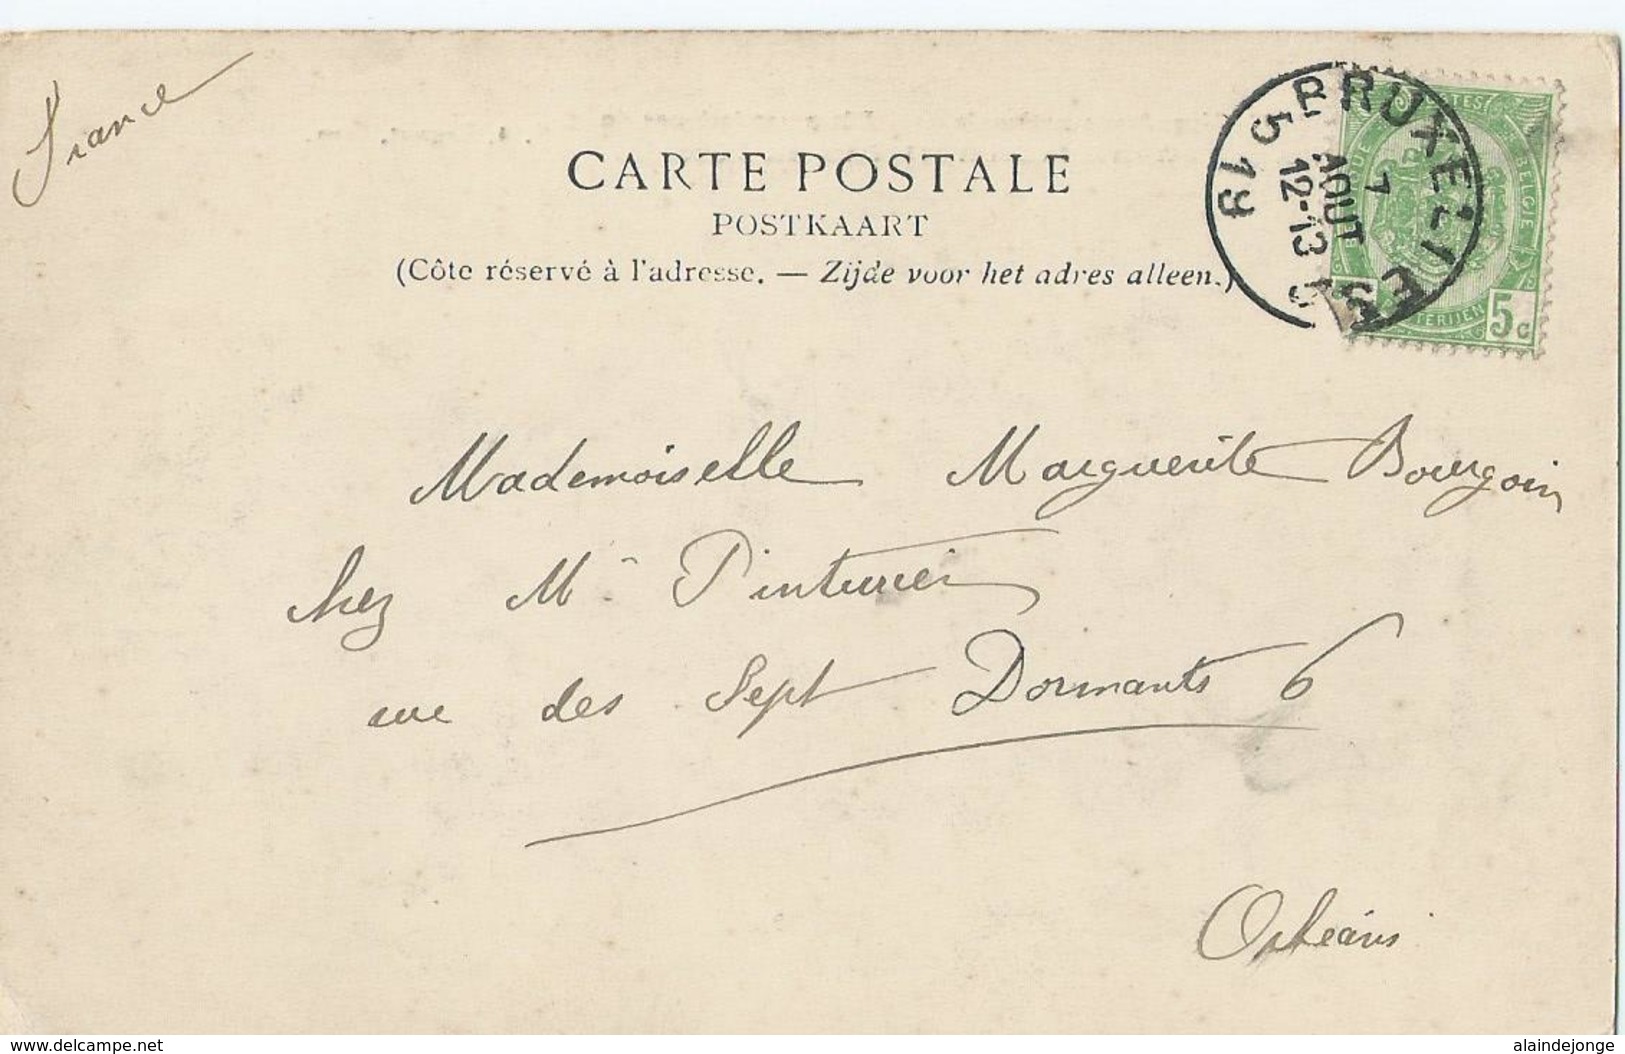 France
CARTE POSTALE
POSTKAART
(Côte réservé à l'adresse. — Zijde voor het adres alleen.)
BRUXELLES 5
7
AOUT
12-13
19 5
5c
Mademoiselle Marguerite Bourgoin
chez Mr Pinturier
rue des Sept Dormants 6
Orléans
www.delcampe.net
alaindejonge